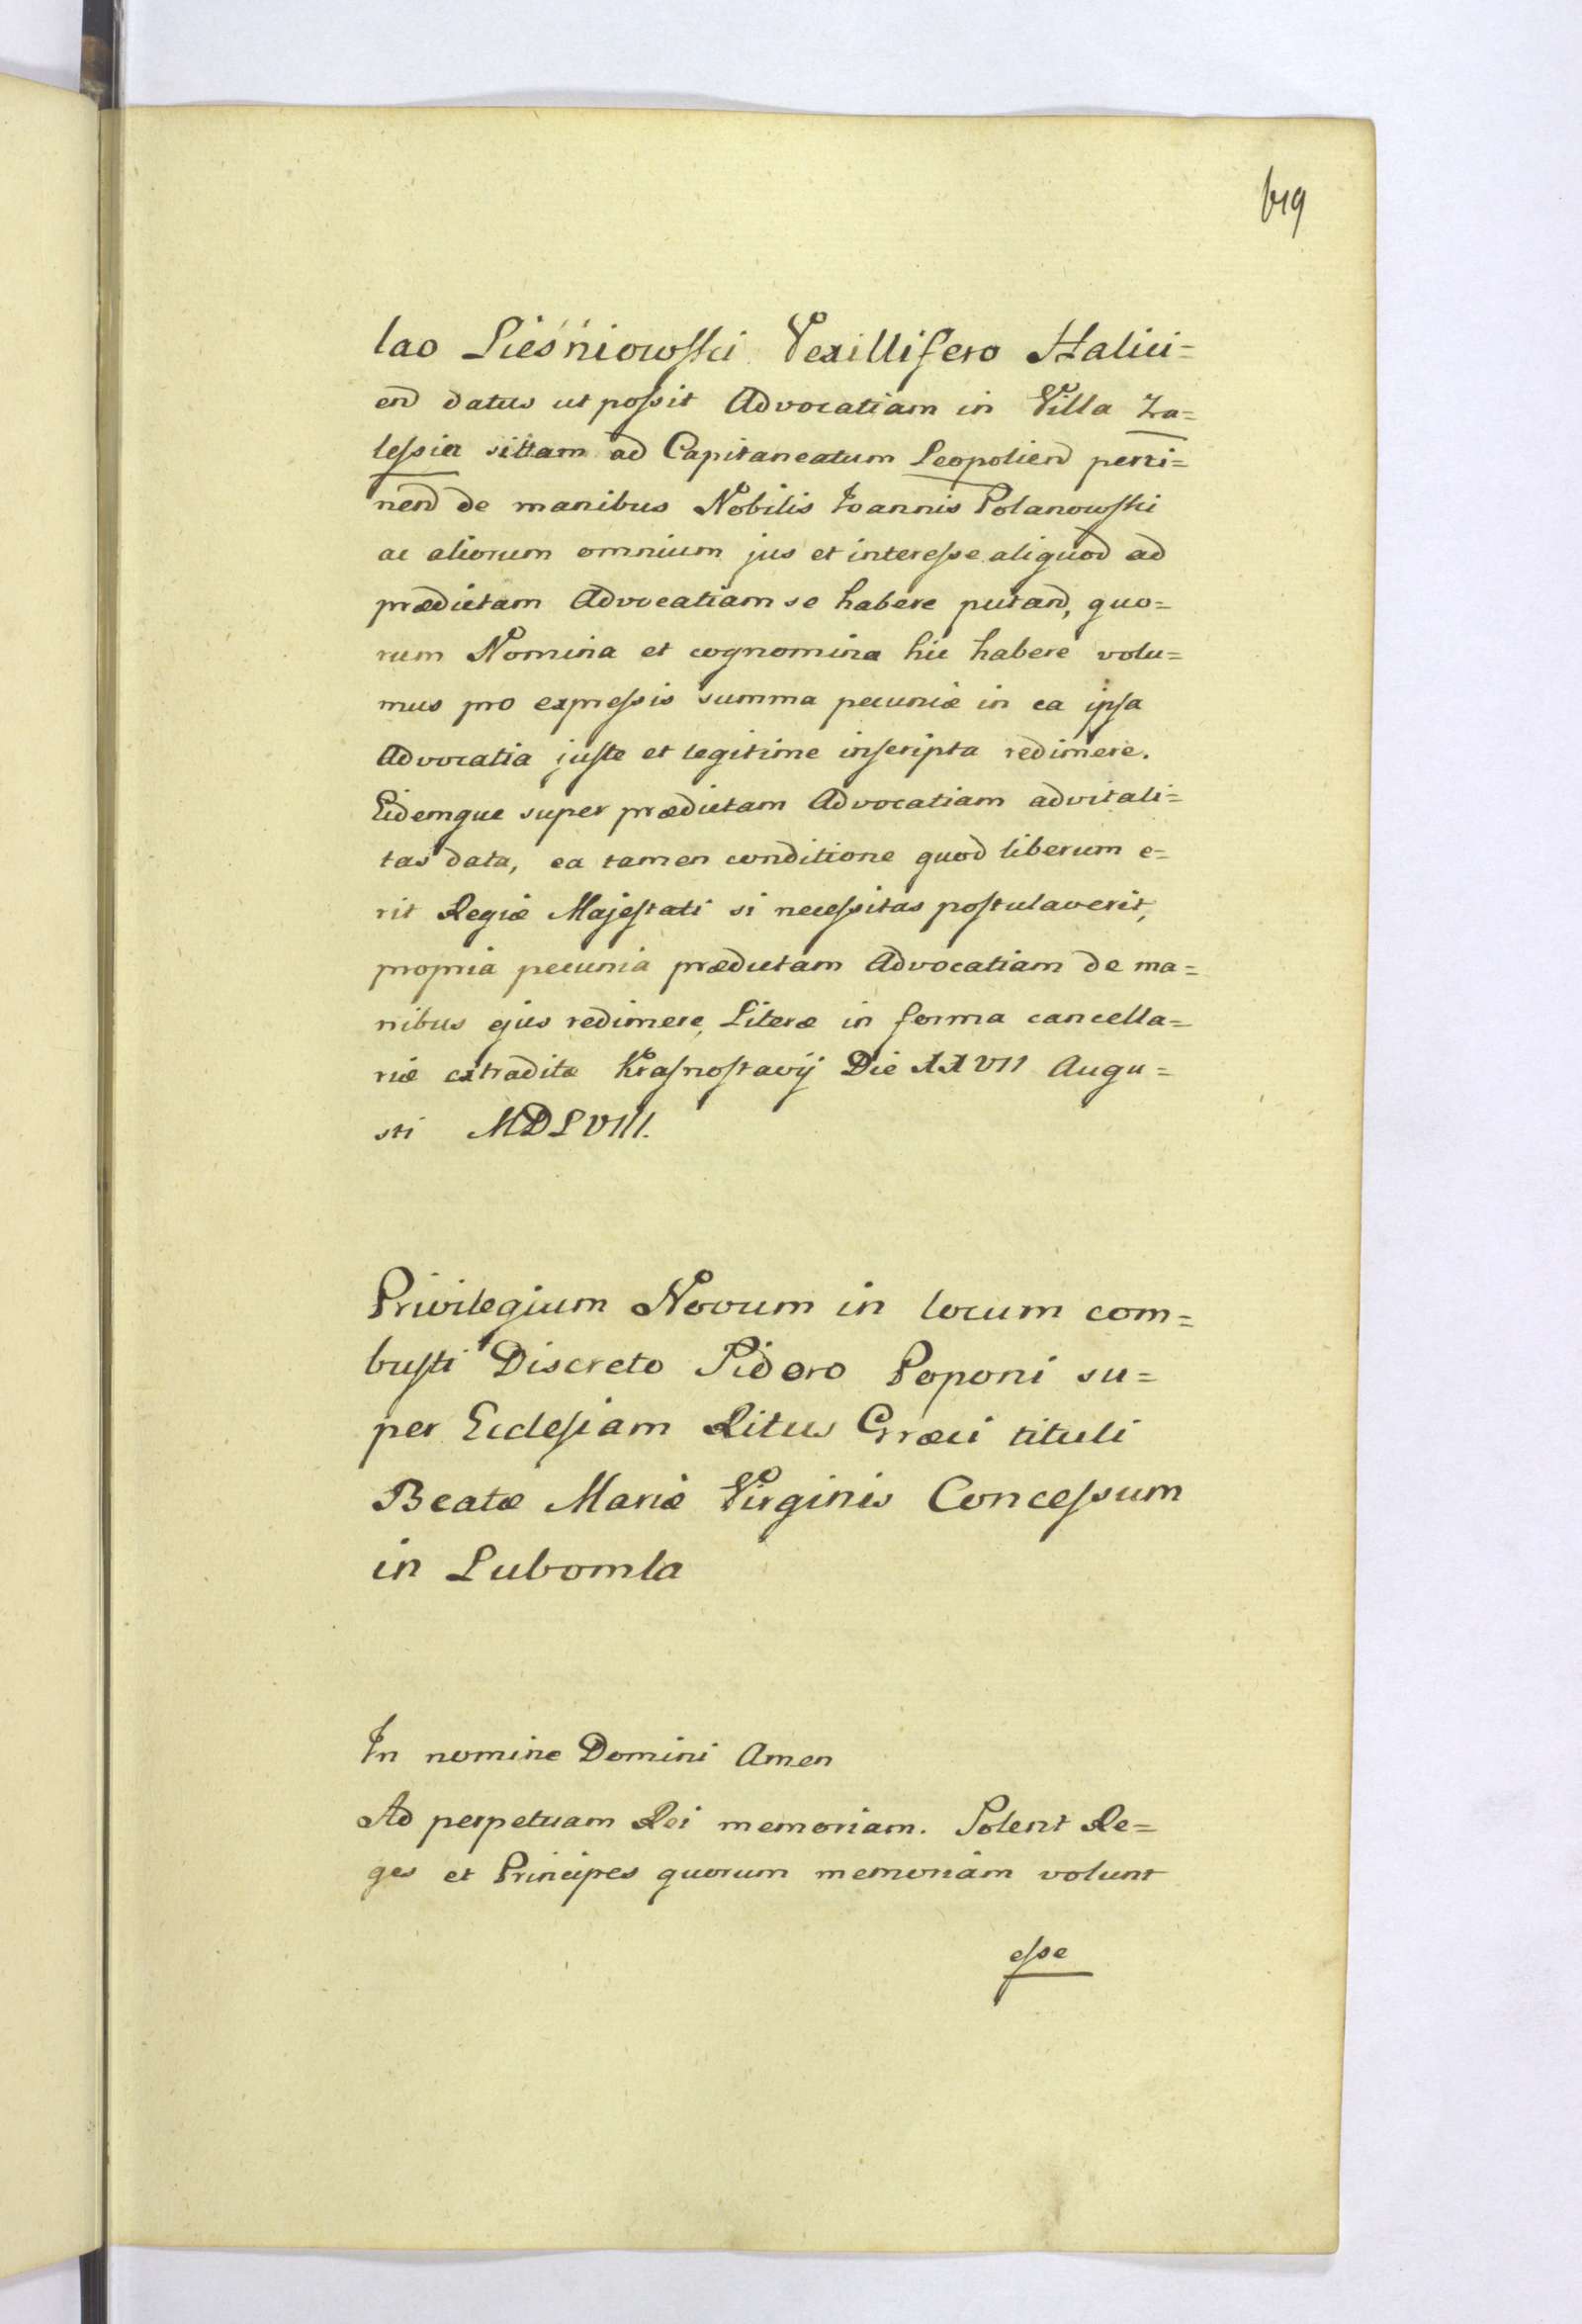 619
lao Lieśniowski Vexillifero Halici=
end datus ut possit Advocatiam in Villa Za=
lessia sittam ad Capitaneatum Leopoliend perti=
nend de manibus Nobilis Joannis Polanowski
ac aliorum omnium jus et interesse aliquod ad
prædictam Advocatiam se habere putand, quo=
rum Nomina et cognomina hic habere volu=
mus pro expressis summa pecuniæ in ea ipsa
Advocatia juste et legitime inscripta redimere.
Eidemque super prædictam Advocatiam advitali=
tas data, ea tamen conditione quod liberum e=
rit Regiæ Majestati si necessitas postulaverit,
propria pecunia prædictam Advocatiam de ma=
nibus ejus redimere, Literæ in forma cancella=
riæ extraditæ Krasnostavij Die XXVII Augu=
sti MDLVIII.
Privilegium Novum in locum com=
busti Discreto Sidoro Poponi su=
per Ecclesiam Ritus Græci tituli
Beatæ Mariæ Virginis Concessum
in Lubomla
In nomine Domini Amen
Ad perpetuam Rei memoriam. Solent Re=
ges et Principes quorum memoriam volunt
esse